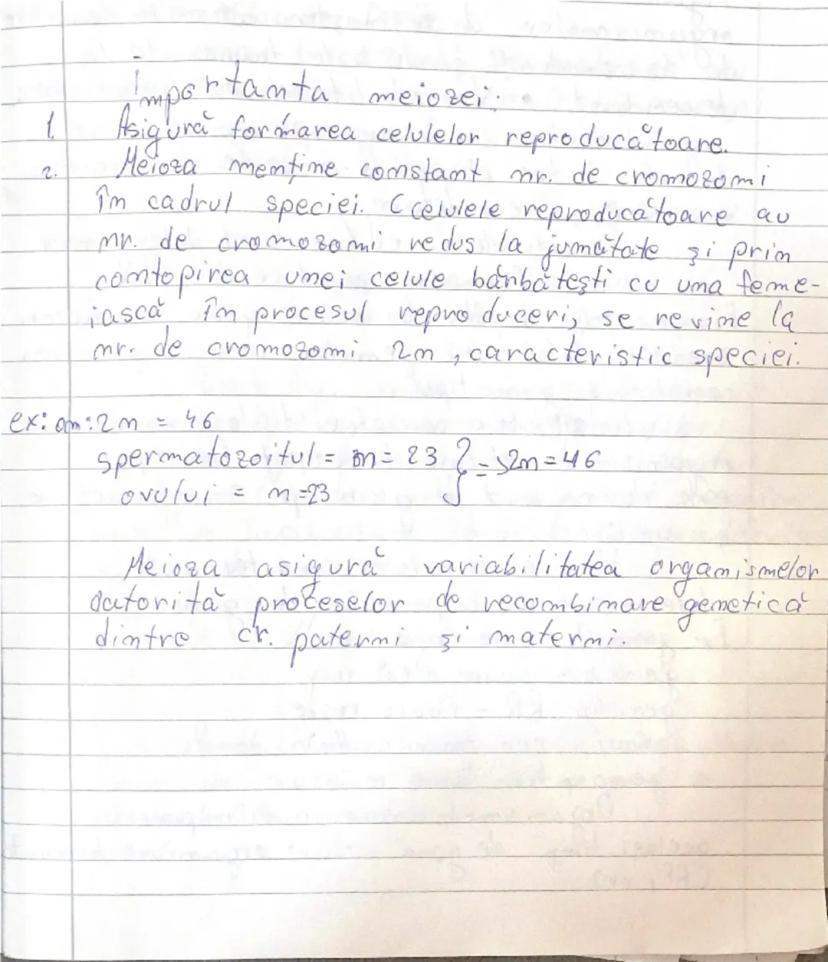 Importanta meiozei:
1. Asigură formarea celulelor reproducătoare.
2. Meioza menține constant nr. de cromozomi
în cadrul speciei. (Celulele reproducătoare au
nr. de cromozomi redus la jumătate și prin
contopirea unei celule bărbătești cu una feme-
iască în procesul reproduceri, se revine la
nr. de cromozomi 2n, caracteristic speciei.
ex: om: 2n = 46
spermatozoitul = n = 23 } => 2n = 46
ovului = n = 23
Meioza asigură variabilitatea organismelor
datorită proceselor de recombinare genetică
dintre cr. paterni și materni.